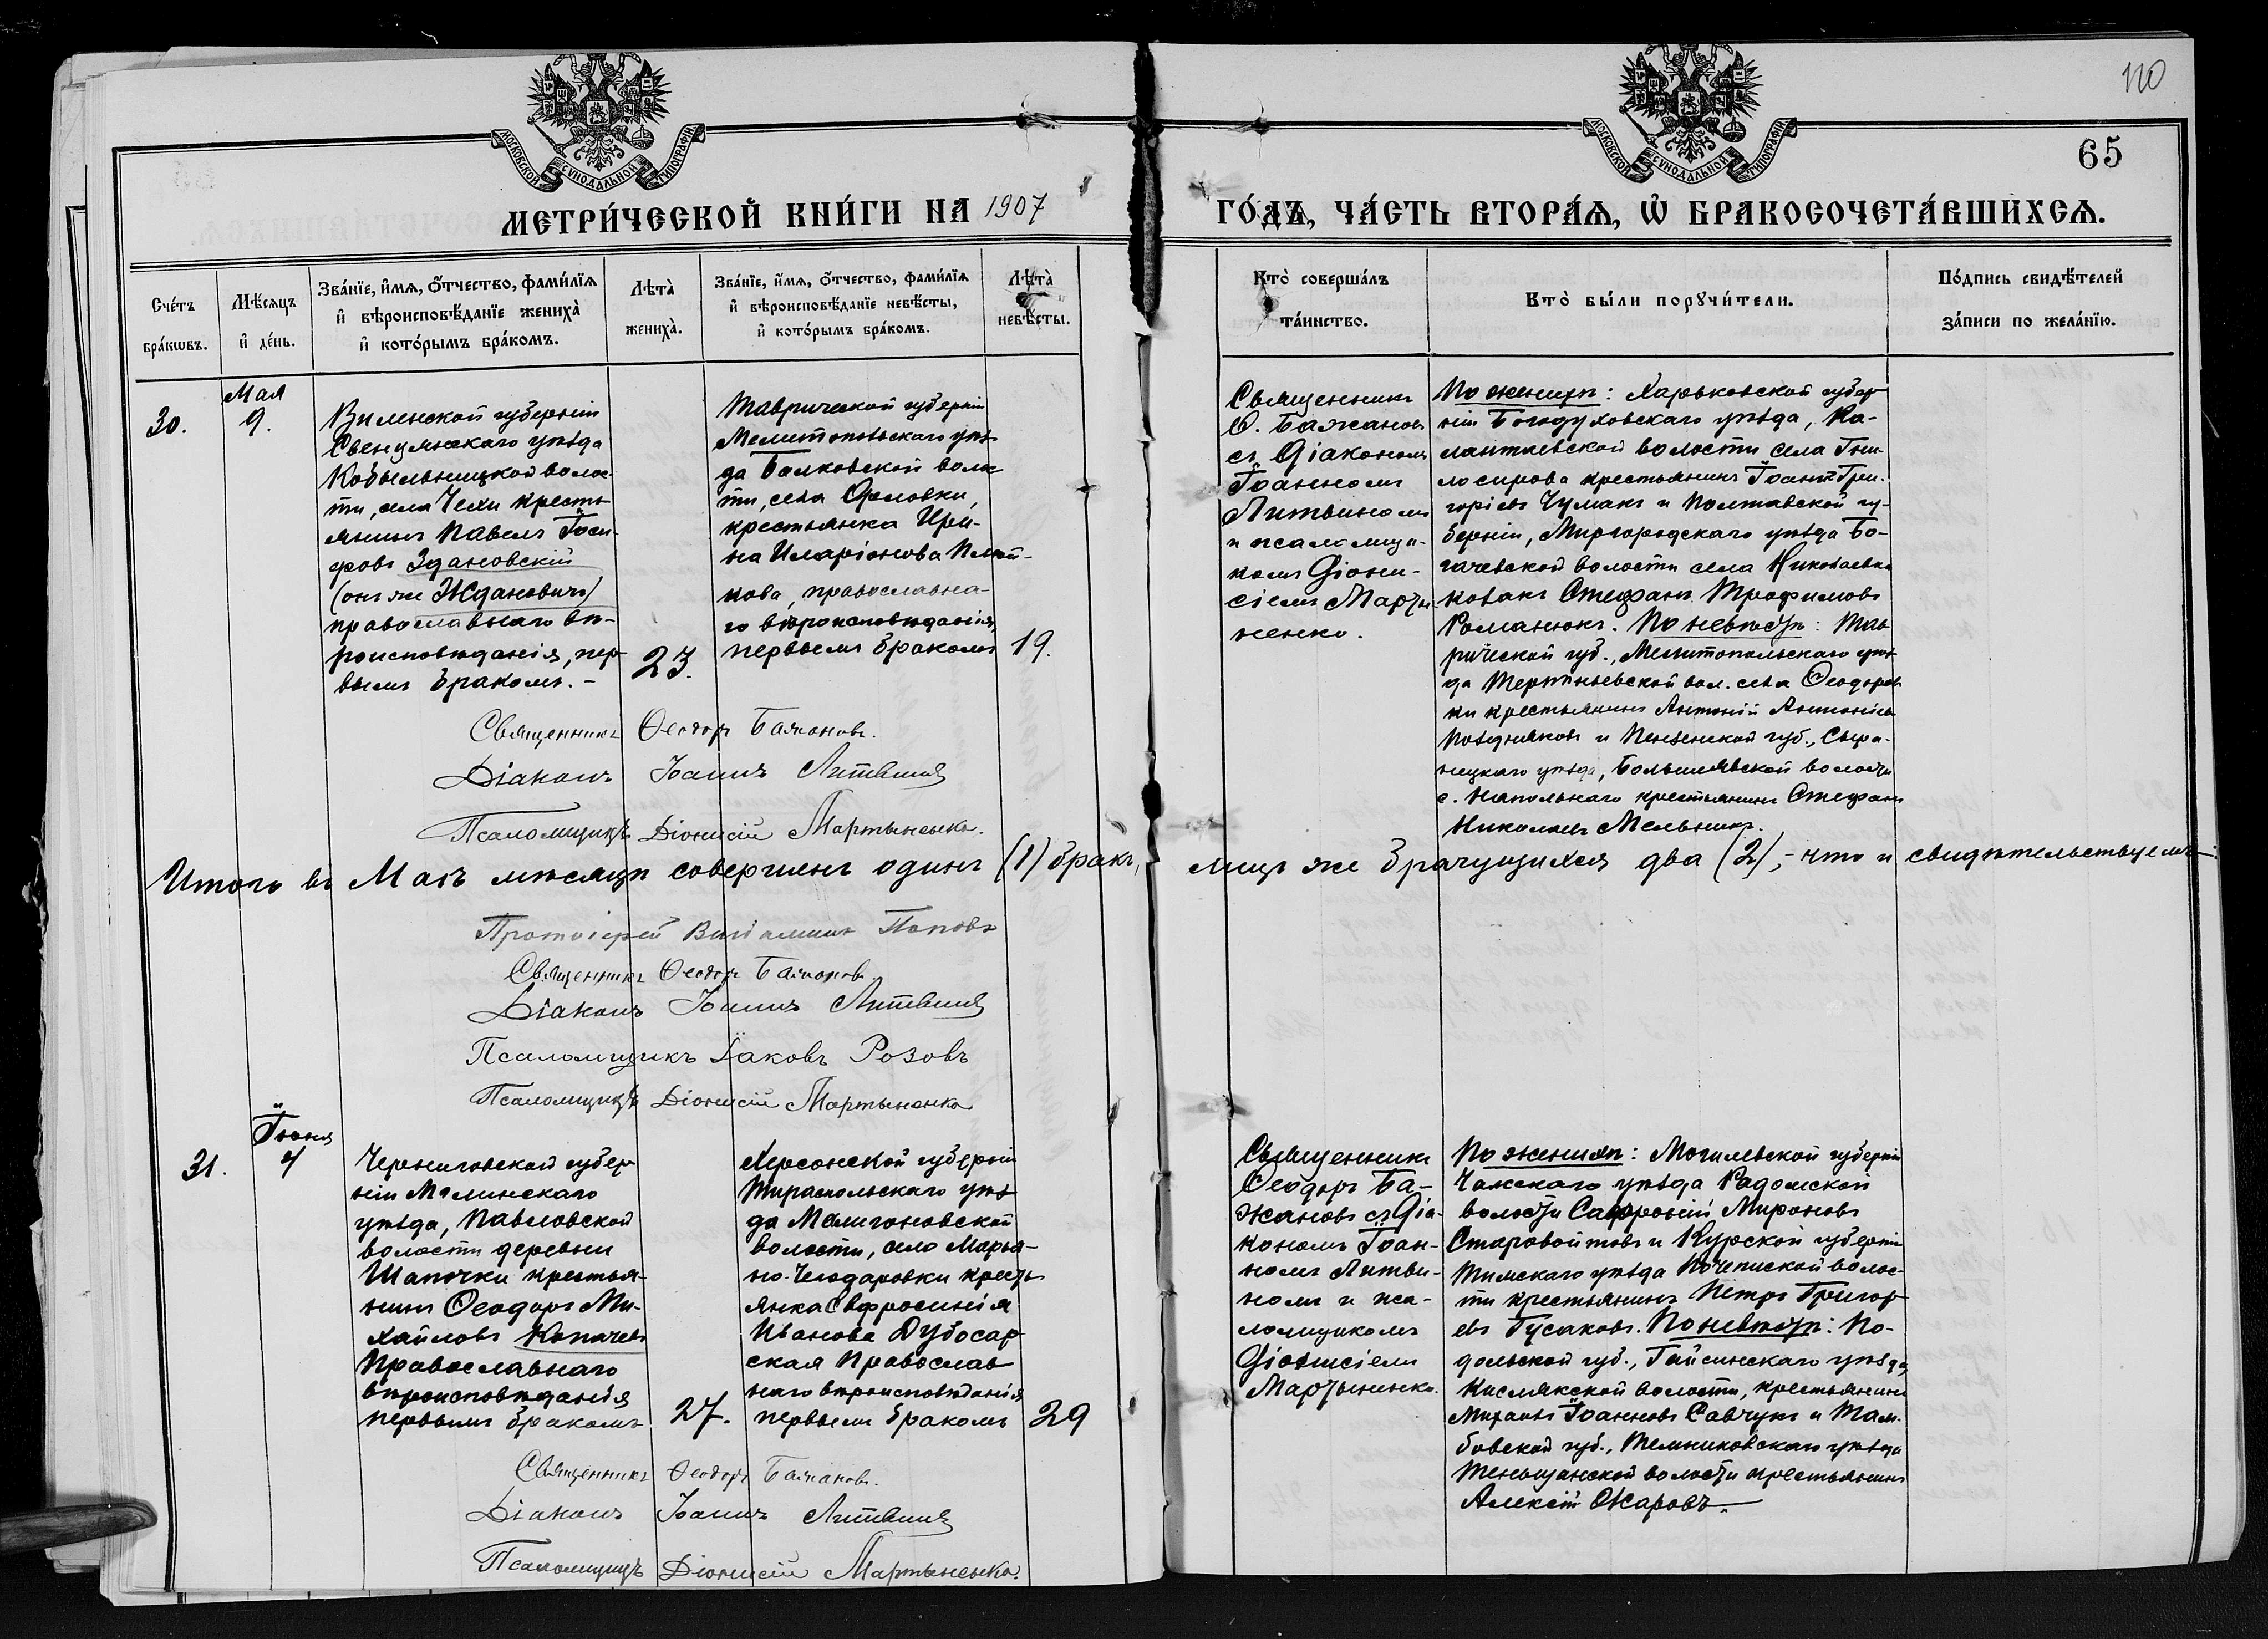 110
65
МОСКОВСКОЙ СѴНОДАЛЬНОЙ ТИПОГРАФІИ
МОСКОВСКОЙ СѴНОДАЛЬНОЙ ТИПОГРАФІИ
МЕТРИ́ЧЕСКОЙ КНИ́ГИ НА 1907
ГО́ДЪ, ЧА́СТЬ ВТОРА́Ѧ, Ѽ БРАКОСОЧЕТА́ВШИХСѦ.
Сче́тъ
бра́кѡвъ.
Мѣ́сяцъ
и҆ де́нь.
Зва́нїе, и҆́мѧ, ѻ҆́тчество, фами́лїѧ
и҆ вѣроисповѣ́данїе жениха̀
и҆ кото́рымъ бра́комъ.
Лѣ́та̀
жениха̀.
Зва́нїе, и҆́мѧ, ѻ҆́тчество, фами́лїѧ
и҆ вѣроисповѣ́данїе невѣ́сты,
и҆ кото́рымъ бра́комъ.
Лѣ́та̀
невѣ́сты.
Кто̀ соверша́лъ
та́инство.
Кто̀ бы́ли порꙋчи́тели.
По́дпись свидѣ́телей
за́писи по жела́нїю.
30.
Мая
9.
Виленской губерніи
Свенцянскаго уѣзда
Кобыльницкой волос-
ти, села Чехи кресть
янинъ Павелъ Іоси-
фовъ Здановскій
(онъ же Ждановичъ)
православнаго вѣ-
роисповѣданія, пер-
вымъ бракомъ. -
23.
Таврической губерніи
Мелитопольскаго уѣз-
да Балковской волос
ти, села Орловки,
крестьянка Ири-
на Иларіонова Плот-
кова, православна-
го вѣроисповѣданія,
первымъ бракомъ
19.
Священникъ
Ѳ. Бажановъ
съ Діакономъ
Іоанномъ
Литвиномъ
и псаломщи-
комъ Діони-
сіемъ Марты
ненко.
По женихѣ: Харьковской губер
ніи Богодуховскаго уѣзда, Ка-
лантаевской волости села Гни-
лосирова крестьянинъ Іоаннъ Гри-
горіевъ Чумакъ и Полтавской гу-
берніи, Миргородскаго уѣзда Бо-
гачевской волости села Николаевки
козакъ Стефанъ Трофимовъ
Романюкъ. По невѣстѣ: Тав
рической губ., Мелитопольскаго уѣз
да Терпѣньевской вол. села Ѳеодоров
ки крестьянинъ Антоній Антоніевъ
Поздняковъ и Пензенской губ., Сара-
нецкаго уѣзда, волости
с. Напольнаго крестьянинъ Стефанъ
Николаевъ Мельникъ.
Священникъ Ѳеодоръ Бажановъ.
Діаконъ Іоаннъ Литвинъ
Псаломщикъ Діонисій Мартыненко.
Итого въ Маѣ мѣсяцѣ совершенъ одинъ (1) бракъ, лицъ же брачущихся два (2), - что и свидѣтельствуемъ:
Протоіерей Веніаминъ Поповъ
Священникъ Ѳеодоръ Бажановъ.
Діаконъ Іоаннъ Литвинъ
Псаломщикъ Іаковъ Розовъ
Псаломщикъ Діонисій Мартыненко
31.
Іюня
4
Черниговской губер
ніи Мглинскаго
уѣзда, Павловской
волости деревни
Шапочки крестья-
нинъ Ѳеодоръ Ми-
хайловъ Копачевъ
Православнаго
вѣроисповѣданія
первымъ бракомъ.
27.
Херсонской губерніи
Тираспольскаго уѣз
да Малигоновской
волости, село Марья-
но-Чегодаровки кресть
янка Евфросинія
Иванова Дубосар
ская Православ
наго вѣроисповѣданія
первымъ бракомъ
29
Священникъ
Ѳеодоръ Ба-
жановъ съ Діа-
кономъ Іоан-
номъ Литви-
номъ и пса-
ломщикомъ
Діонисіемъ
Мартыненко.
По женихѣ: Могилевской губерніи
Чаусскаго уѣзда Радомской
волости Савроній Мироновъ
Старовойтовъ и Курской губерніи
Тимскаго уѣзда волос-
ти крестьянинъ Петръ Григор
евъ Гусаковъ. По невѣстѣ: По-
дольской губ., Гайсинскаго уѣзда,
Кислякской волости, крестьянинъ
Михаилъ Іоанновъ Савчукъ и Там-
бовской губ., Темниковскаго уѣзда
волости крестьянинъ
Алексій Ожаровъ.
Священникъ Ѳеодоръ Бажановъ.
Діаконъ Іоаннъ Литвинъ
Псаломщикъ Діонисій Мартыненко.